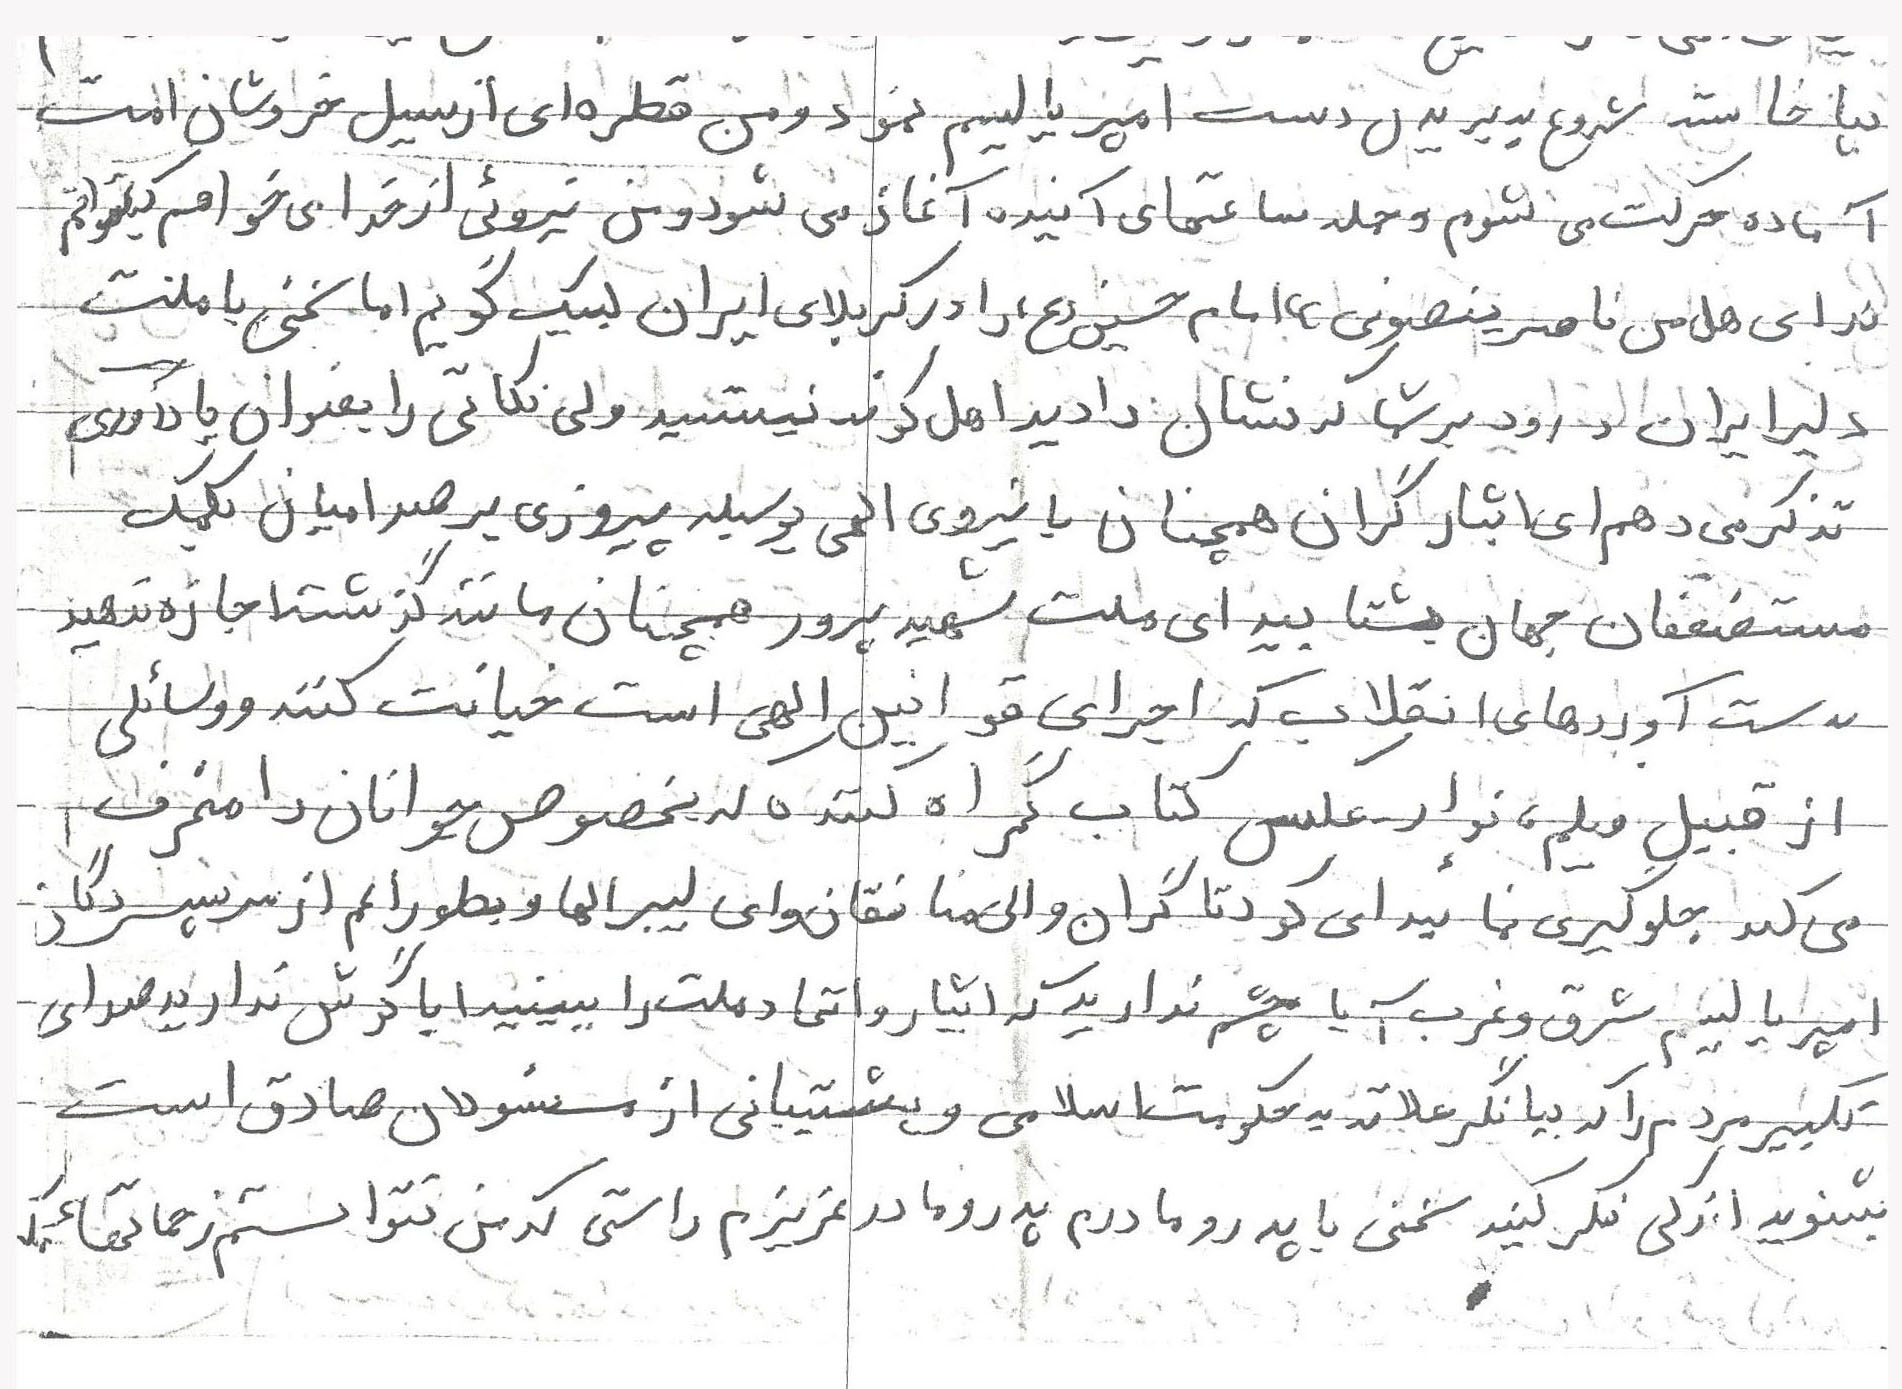 بپا خاستند شروع به بریدن دست امپریالیسم نمود و من قطره‌ای از سیل خروشان امت
آماده حرکت می شوم و حمله ساعتهای آینده آغاز می شود و من نیروئی از خدا می خواهم که بتوانم
ندای هل من ناصر ینصرنی امام حسین (ع) را در کربلای ایران لبیک گویم اما سخنی با ملت
دلیر ایران درود بر شما که نشان دادید اهل کوفه نیستید ولی نکاتی را بعنوان یادآوری
تذکر می دهم ای ایثارگران همچنان با نیروی الهی بوسیله پیروزی بر صدامیان بکمک
مستضعفان جهان بشتابید ای ملت شهید پرور همچنان مانند گذشته اجازه ندهید
به دست آوردهای انقلاب که اجرای قوانین الهی است خیانت کنند و وسائلی
از قبیل فیلم، نوار عکس کتاب گمراه کننده که بخصوص جوانان را منحرف
می کند جلوگیری نمائید ای کودتاگران و ای منافقان و ای لیبرالها و بطور اعم از سرسپردگان
امپریالیسم شرق و غرب آیا چشم ندارید که ایثار و اتحاد ملت را ببینید ایا گوش ندارید صدای
تکبیر مردم را که بیانگر علاقه به حکومت اسلامی و پشتیبانی از مسئولان صادق است
بشنوید اندکی فکر کنید سخنی با پدر و مادرم پدر و مادر عزیزم راستی که من نتوانستم زحماتهائیکه